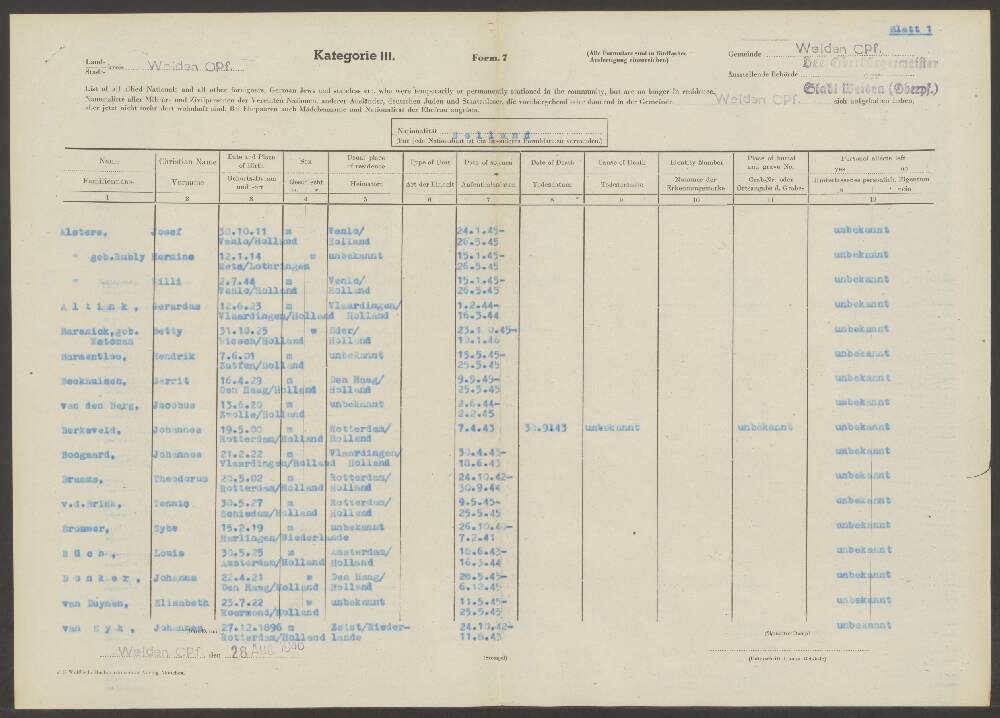 Blatt 1
Kategorie III.
Form. 7
(Alle Formulare sind in fünffacher Ausfertigung einzureichen)
Gemeinde Weiden OPf.
Land-
Stadt- kreis Weiden OPf.
Ausstellende Behörde Der Oberbürgermeister
der
Stadt Weiden (Oberpf.)
List of all allied Nationals and all other foreigners, German Jews and stateless etc. who were temporarily or permanently stationed in the community, but are no longer in residence.
Namensliste aller Militär- und Zivilpersonen der Vereinten Nationen, anderer Ausländer, deutschen Juden und Staatenloser, die vorübergehend oder dauernd in der Gemeinde Weiden OPf. sich aufgehalten haben,
aber jetzt nicht mehr dort wohnhaft sind. Bei Ehepaaren auch Mädchenname und Nationalität der Ehefrau angeben.
Nationalität Holland
(Für jede Nationalität ist ein besonderes Formblatt zu verwenden.)
Name Christian Name Date and Place of Birth Sex Usual place of residence Type of Unit Date of sojourn Date of Death Cause of Death Identity Number Place of burial and grave No. Personal effects left yes no
Familienname Vorname Geburts-Datum und -ort Geschlecht m. w. Heimatort Art der Einheit Aufenthaltsdauer Todesdatum Todesursache Nummer der Erkennungsmarke Grab-Nr. oder Ortsangabe d. Grabes Hinterlassenes persönlich. Eigentum ja nein
1 2 3 4 5 6 7 8 9 10 11 12
Alsters, Josef 30.10.11 m Venlo/ 24.1.45- unbekannt
Venlo/Holland Holland 26.5.45
" geb.Rubly Hermine 12.1.14 w unbekannt 15.1.45- unbekannt
Metz/Lothringen 26.5.45
" Willi 2.7.44 m Venlo/ 15.1.45- unbekannt
Venlo/Holland Holland 26.5.45
Altink, Gerardus 12.6.23 m Vlaardingen/ 1.2.44- unbekannt
Vlaardingen/Holland Holland 16.3.44
Barenick,geb. Betty 31.10.25 w Eder/ 23.10.45- unbekannt
Holland Holland 10.1.46
Harmentloo, Hendrik 7.6.01 m unbekannt 15.5.45- unbekannt
Zutfen/Holland 25.5.45
Beekhuisen, Gerrit 16.4.29 m Den Haag/ 9.5.45- unbekannt
Den Haag/Holland Holland 25.5.45
van den Berg, Jacobus 13.6.20 m unbekannt 2.6.44- unbekannt
Zwolle/Holland 2.2.45
Berkeveld, Johannes 19.5.00 m Rotterdam/ 7.4.43 30.9.43 unbekannt unbekannt unbekannt
Rotterdam/Holland Holland
Boogaard, Johannes 21.2.22 m Vlaardingen/ 30.4.43- unbekannt
Vlaardingen/Holland Holland 18.6.43
Braams, Theodorus 20.5.02 m Rotterdam/ 24.10.42- unbekannt
Rotterdam/Holland Holland 30.9.44
v.d.Brink, Tennie 30.5.27 m Rotterdam/ 9.5.45- unbekannt
Schiedam/Holland Holland 25.5.45
Brommer, Sybe 15.2.19 m unbekannt 26.10.40- unbekannt
Harlingen/Niederlande 7.2.41
Büch, Louis 30.5.25 m Amsterdam/ 18.6.43- unbekannt
Amsterdam/Holland Holland 16.3.44
Donker, Johanna 22.4.21 w Den Haag/ 28.5.45- unbekannt
Den Haag/Holland Holland 6.12.45
van Duynen, Elisabeth 23.7.22 w unbekannt 11.5.45- unbekannt
Roermond/Holland 25.5.45
van Eyk, Johannes 27.12.1896 m Zeist/Nieder- 24.10.42- unbekannt
Rotterdam/Holland lande 11.8.43
Weiden OPf. den 28 AUG 1946
(Stempel)
(Unterschrift d. ausst. Behörde)